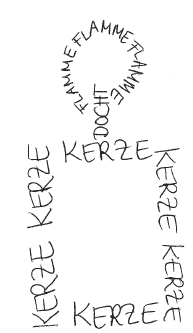 FLAMME FLAMME FLAMME
DOCHT
KERZE
KERZE KERZE
KERZE KERZE
KERZE